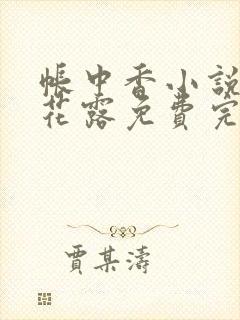 帳中香小說
花露免費完
賈某濤